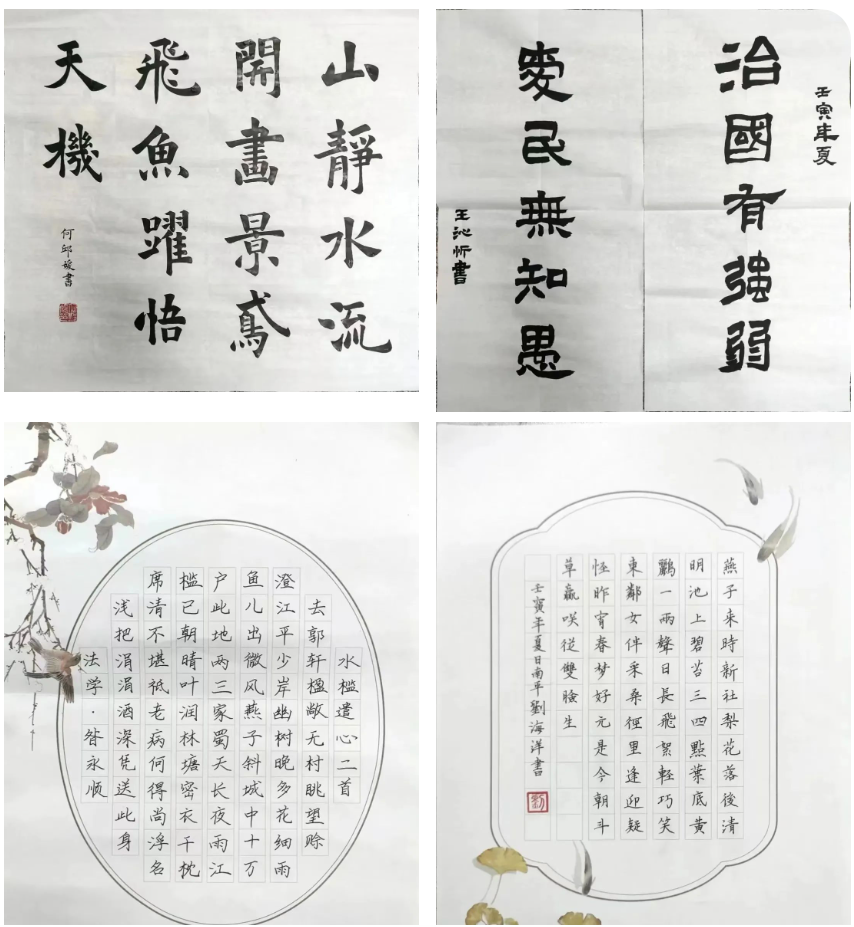 山靜水流
開畫景鳶
飛魚躍悟
天機
何邱媛書
壬寅年夏
治國有強弱
愛民無知愚
王沁忻書
水槛遣心二首
去郭轩楹敞无村眺望赊
澄江平少岸幽树晚多花细雨
鱼儿出微风燕子斜城中十万
户此地两三家蜀天长夜雨江
槛已朝晴叶润林塘密衣干枕
席清不堪祗老病何得尚浮名
浅把涓涓酒深凭送此身
法学·昝永顺
燕子来時新社梨花落後清
明池上碧苔三四點葉底黄
鸝一兩聲日長飛絮輕巧笑
東鄰女伴采桑徑里逢迎疑
怪昨宵春梦好元是今朝斗
草贏咲從雙臉生
壬寅年夏日南平劉海洋書